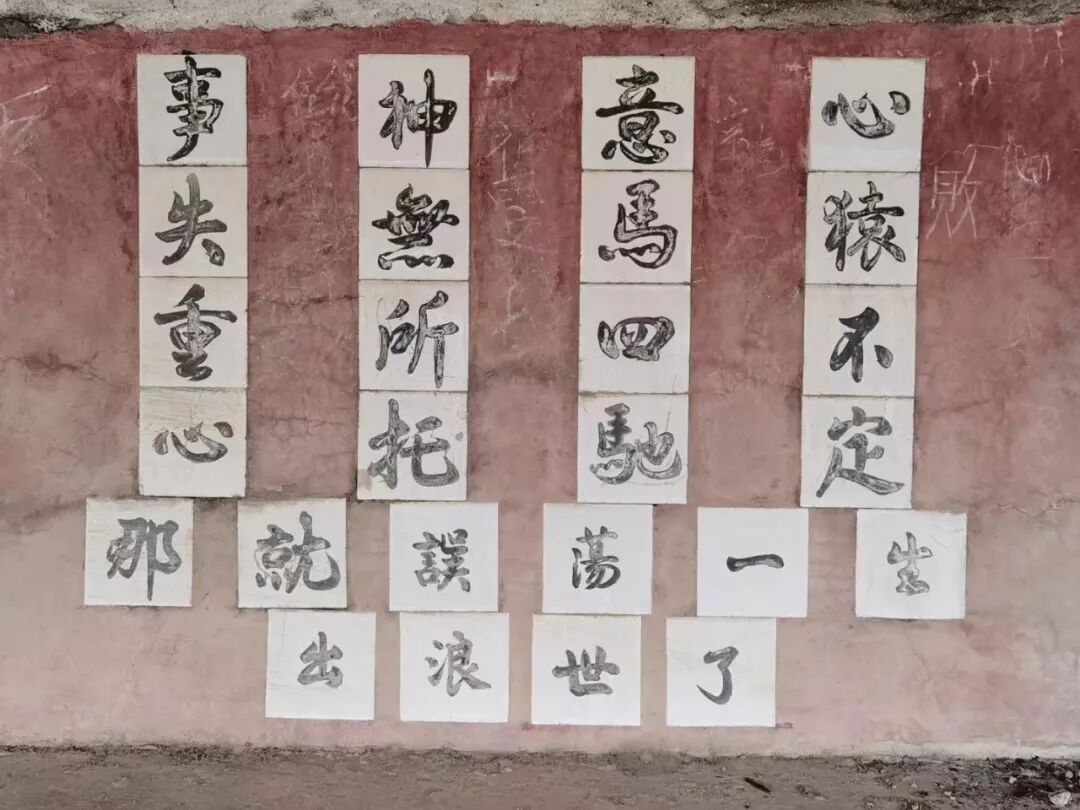 心猿不定
意馬四馳
神無所托
事失重心
那就誤蕩一生
出浪世了
敗